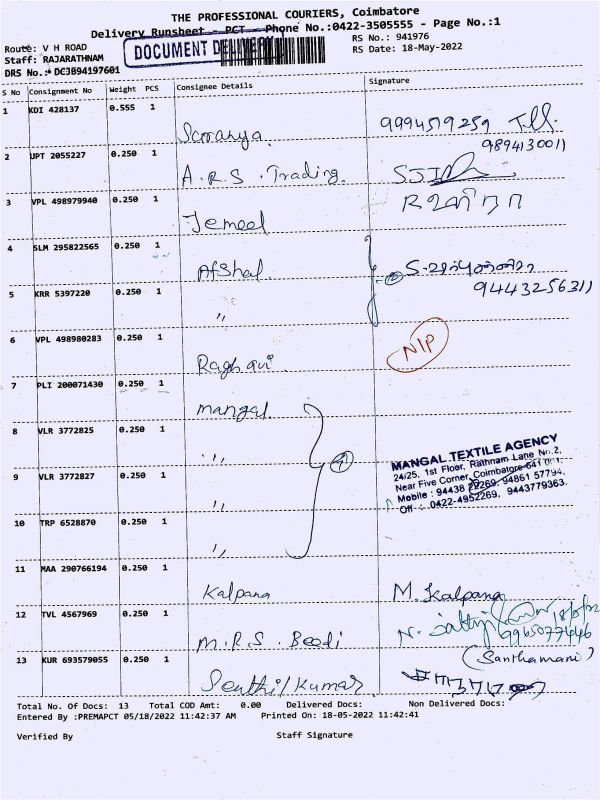 THE PROFESSIONAL COURIERS, Coimbatore
Delivery Runsheet - PCT - Phone No.:0422-3505555 - Page No.:1
Route: V H ROAD
RS No.: 941976
DOCUMENT DELIVERY
Staff: RAJARATHNAM
RS Date: 18-May-2022
DRS No.: DCJB94197601
S No Consignment No Weight PCS Consignee Details Signature
1 KDI 428137 0.555 1
Sooranya 9994519259
9894130011
2 UPT 2055227 0.250 1
A.R.S. Trading
3 VPL 498979940 0.250 1
Jemeel
4 SLM 295822565 0.250 1
Afshal
5 KRR 5397220 0.250 1
9443256311
〃
6 VPL 498980283 0.250 1
Raghavi N/P
7 PLI 200071430 0.250 1
Mangal
8 VLR 3772825 0.250 1
〃 4
MANGAL TEXTILE AGENCY
24/25, 1st Floor, Rathnam Lane No.2,
Near Five Corner, Coimbatore-641 001.
Mobile : 94438 22269, 94861 57794,
Off : 0422-4952269, 9443779363.
9 VLR 3772827 0.250 1
〃
10 TRP 6528870 0.250 1
〃
11 MAA 290766194 0.250 1
Kalpana M. Kalpana
12 TVL 4567969 0.250 1
M.R.S. Beedi 9965077646
(Santhamani)
13 KUR 693579055 0.250 1
Senthil Kumar
Total No. Of Docs: 13 Total COD Amt: 0.00 Delivered Docs: Non Delivered Docs:
Entered By :PREMAPCT 05/18/2022 11:42:37 AM Printed On: 18-05-2022 11:42:41
Verified By Staff Signature